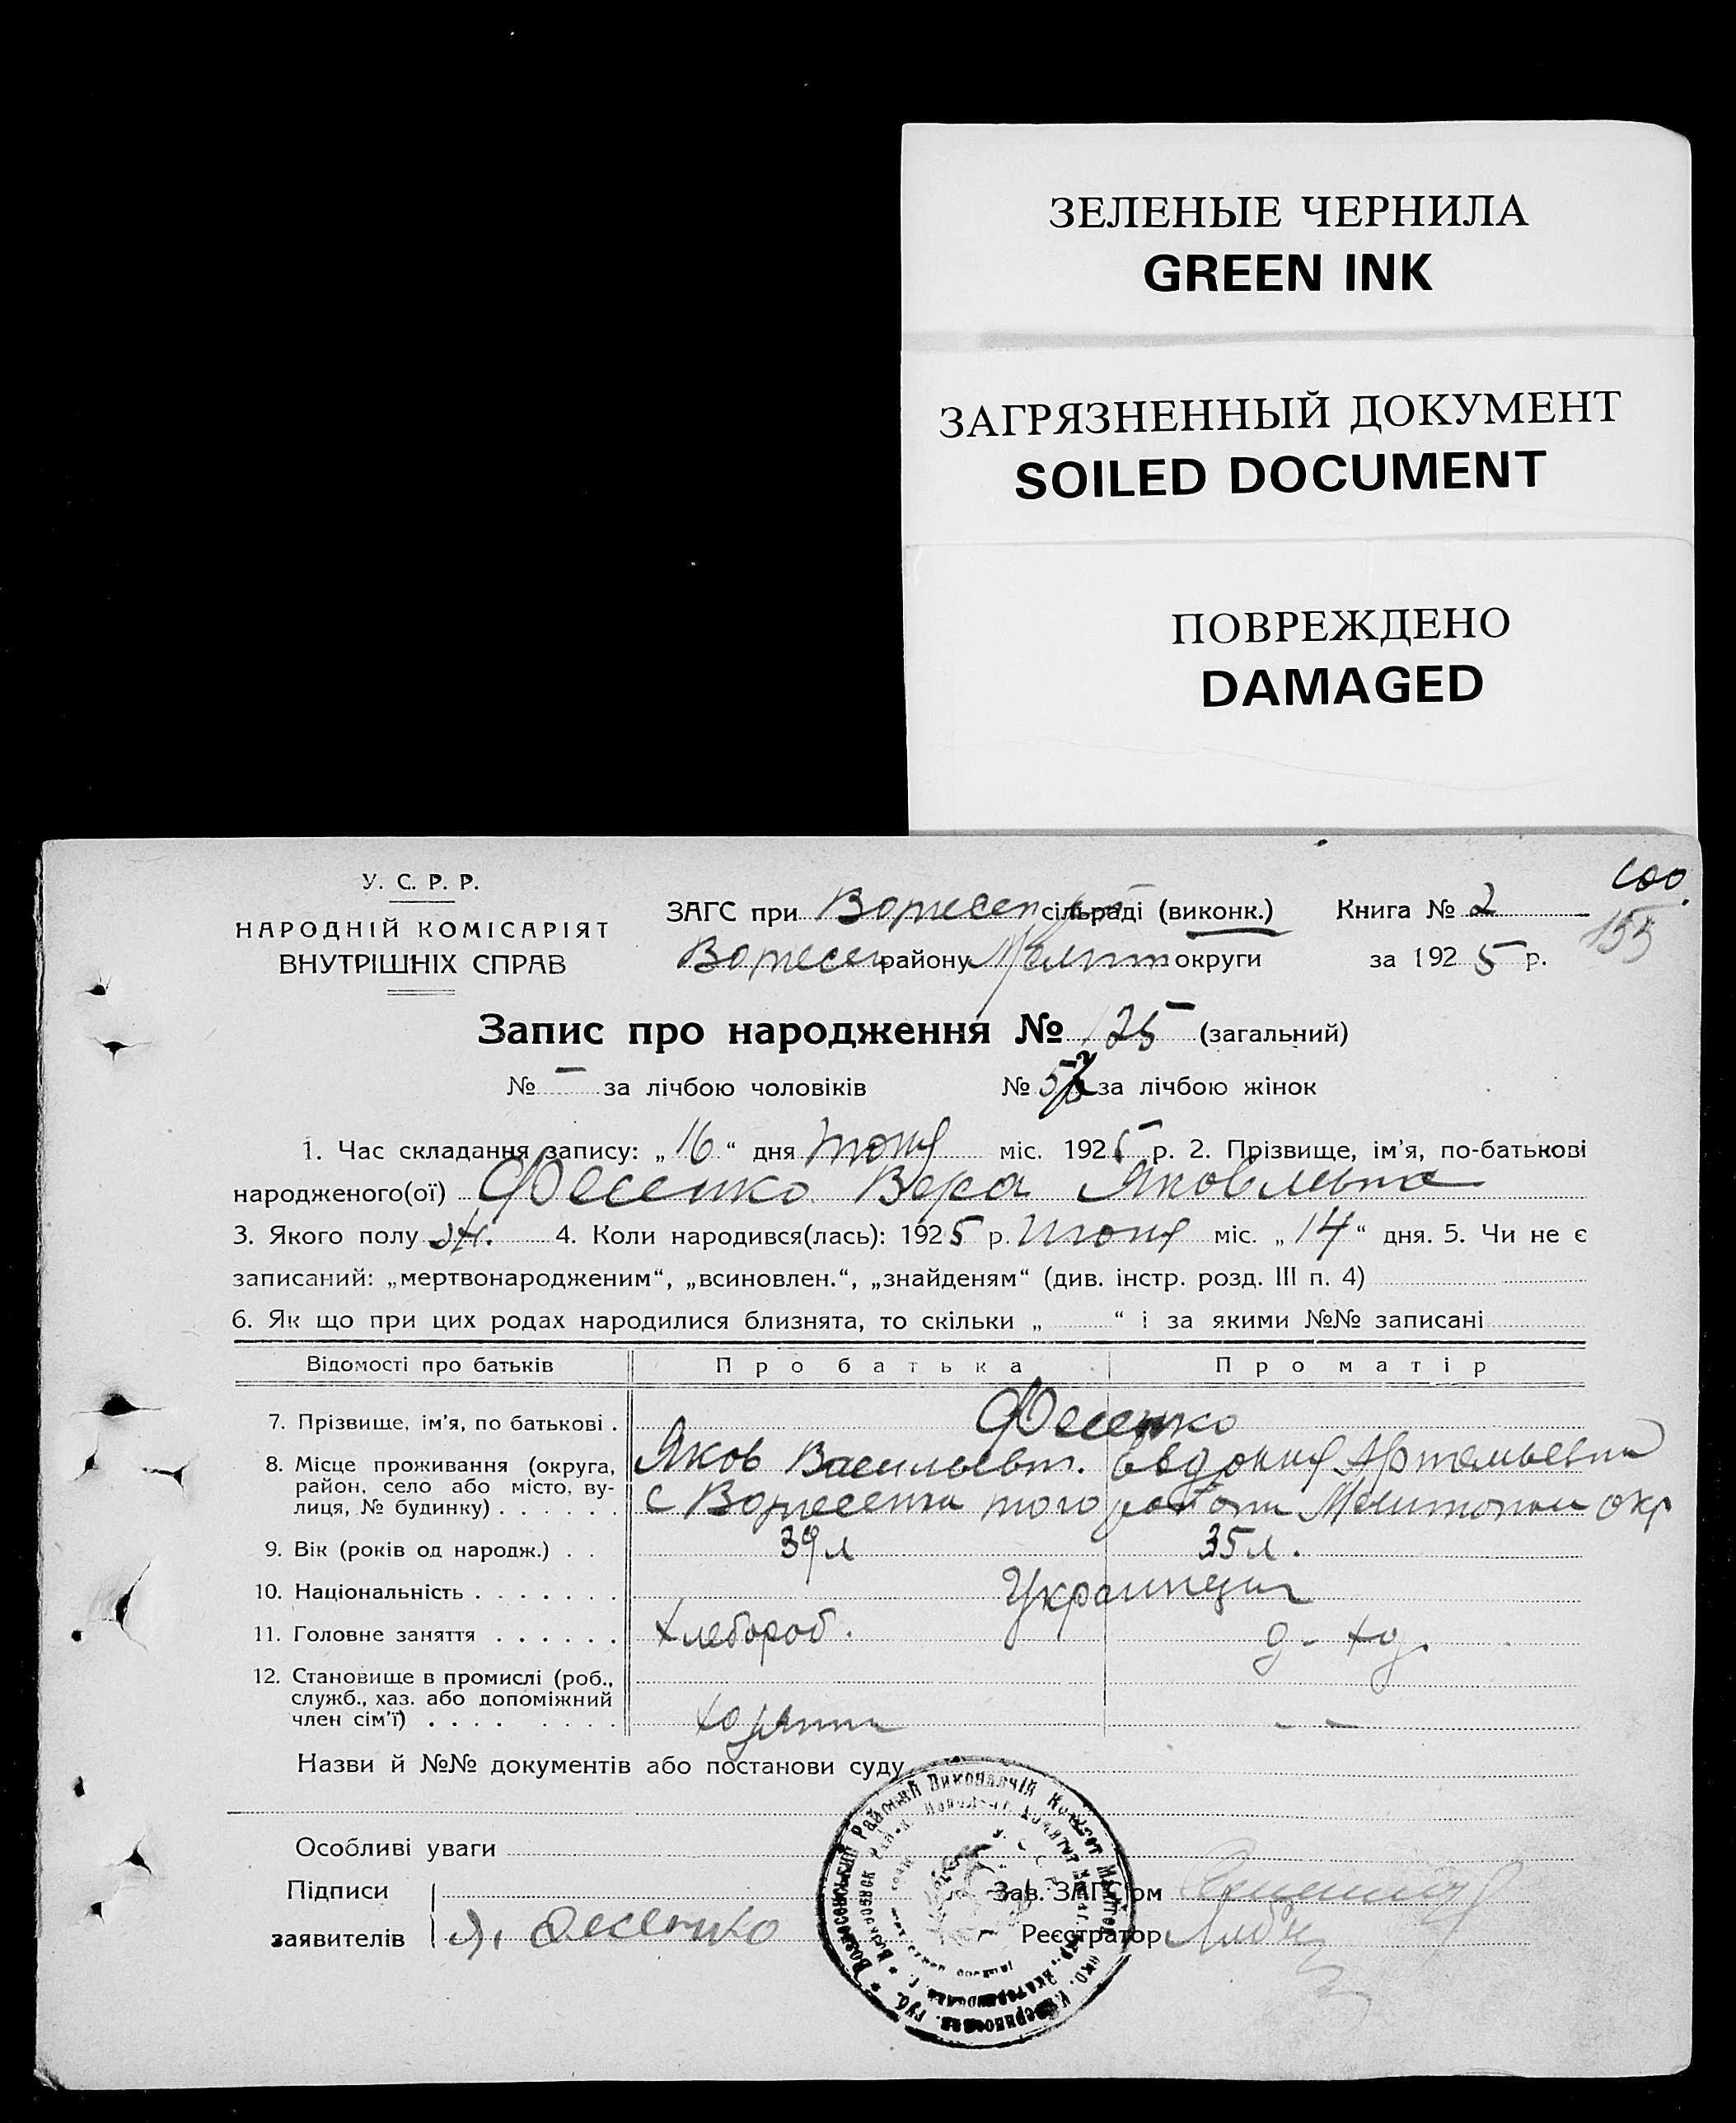 ЗЕЛЕНЫЕ ЧЕРНИЛА
GREEN INK
ЗАГРЯЗНЕННЫЙ ДОКУМЕНТ
SOILED DOCUMENT
ПОВРЕЖДЕНО
DAMAGED
155
У. С. Р. Р.
НАРОДНІЙ КОМІСАРІЯТ
ВНУТРІШНІХ СПРАВ
ЗАГС при Вознесен сільраді (виконк.) Книга № 2
Вознесен району Меліт округи за 1925 р.
Запис про народження № 125 (загальний)
№ - за лічбою чоловіків № за лічбою жінок
1. Час складання запису: „16“ дня Июня міс. 1925 р. 2. Прізвище, ім'я, по-батькові
народженого(ої) Фесенко Вера Яковлевна
3. Якого полу ж. 4. Коли народився(лась): 1925 р. Июня міс. „14“ дня. 5. Чи не є
записаний: „мертвонародженим“, „всиновлен.“, „знайденям“ (див. інстр. розд. III п. 4)
6. Як що при цих родах народилися близнята, то скільки „ “ і за якими №№ записані
Відомості про батьків Про батька Про матір
7. Прізвище, ім'я, по батькові . Фесенко
Яков Васильевич. Евдокия Артемьевна
8. Місце проживання (округа, район, село або місто, вулиця, № будинку) . . . . . . с Вознесенка того района Мелитопол окр
9. Вік (років од народж.) . . 39 л 35 л.
10. Національність . . . . . . . Украинцы
11. Головне заняття . . . . . . Хлебороб. д. хоз.
12. Становище в промислі (роб.,
служб., хаз. або допоміжний
член сім'ї) . . . . . . . . . хозяин - -
Назви й №№ документів або постанови суду
Особливі уваги
Підписи
заявителів Я. Фесенко
Зав. ЗАГС'ом
Реєстратор
Вознесенський Районний Виконавчій Комітет Меліт окр. Катеринослав. губ.